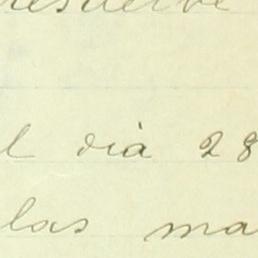 resuelve
l dià 28
las ma